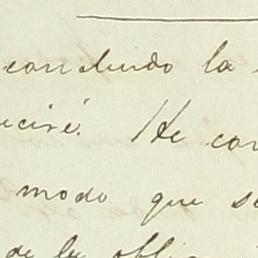 concluido la
He con
modo que se
de la oblig